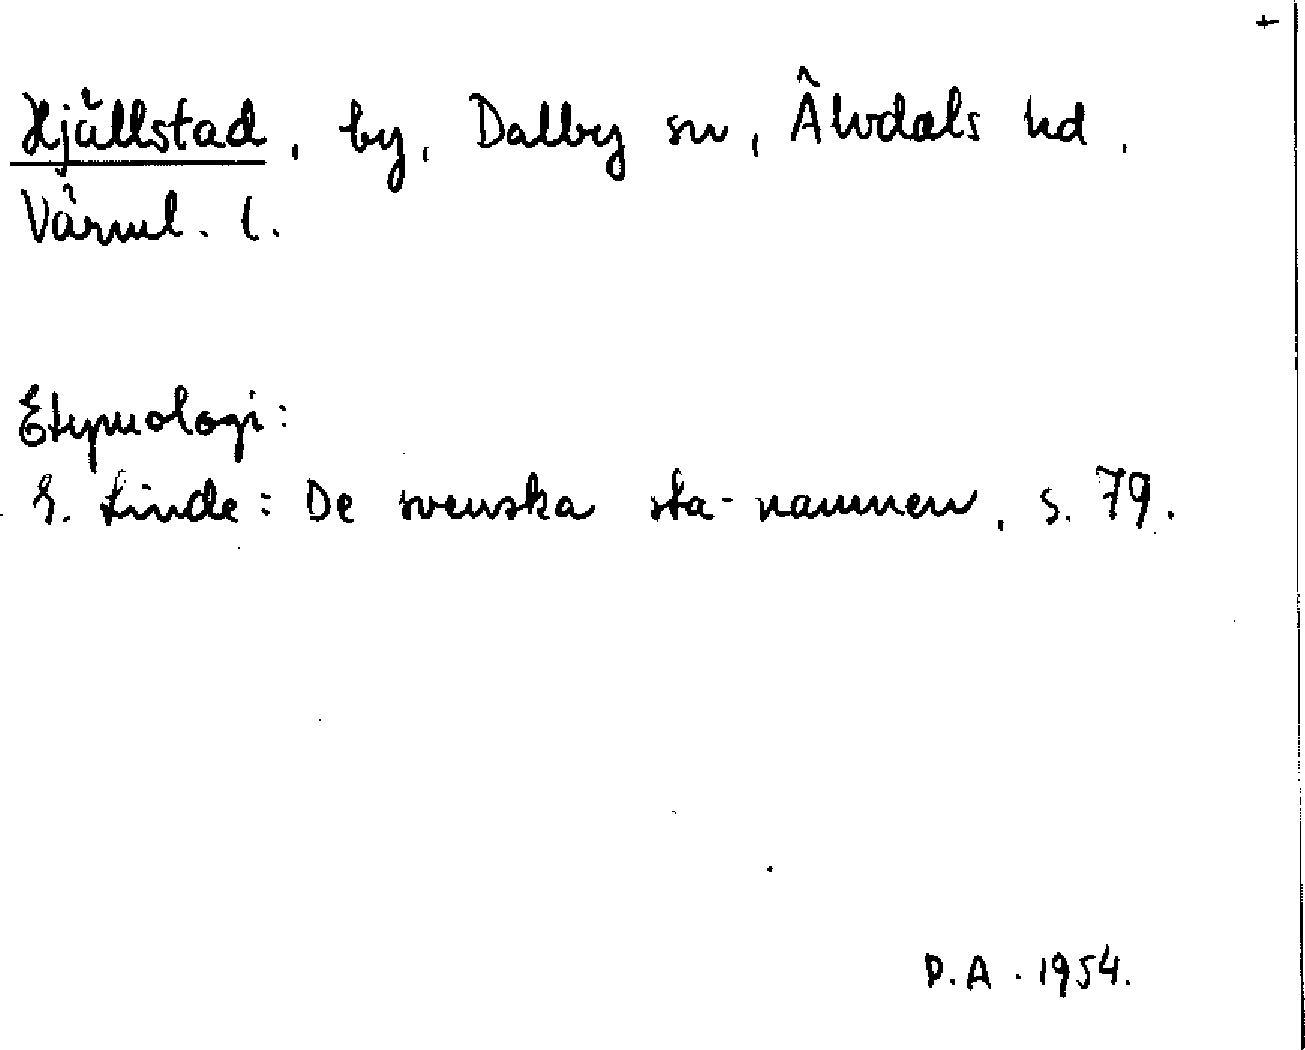 +
Hjällstad, by, Dalby sn, Älvdals hd,
Värml. l.
Etymologi:
G. Linde: De svenska sta-namnen, s. 79.
P.A. 1954.